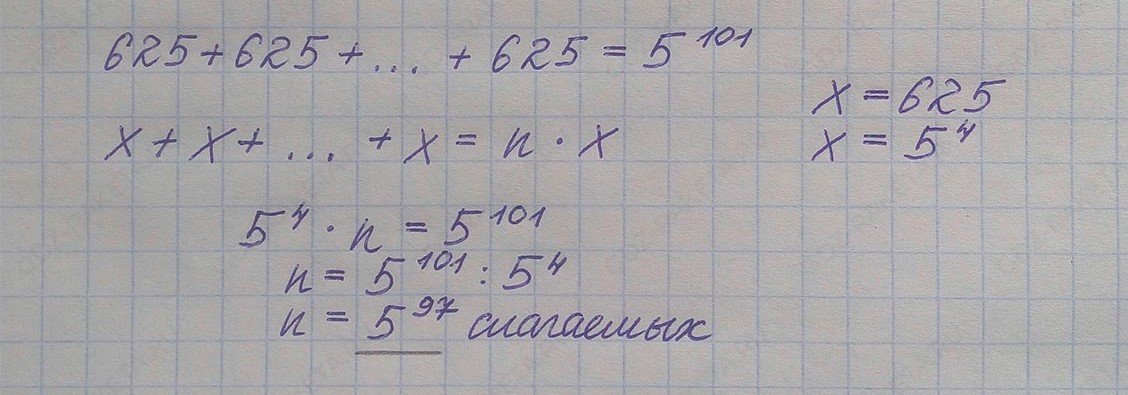 625+625+...+625=5¹⁰¹
x=625
x+x+...+x=n·x
x=5⁴
5⁴·n=5¹⁰¹
n=5¹⁰¹:5⁴
n=5⁹⁷ слагаемых